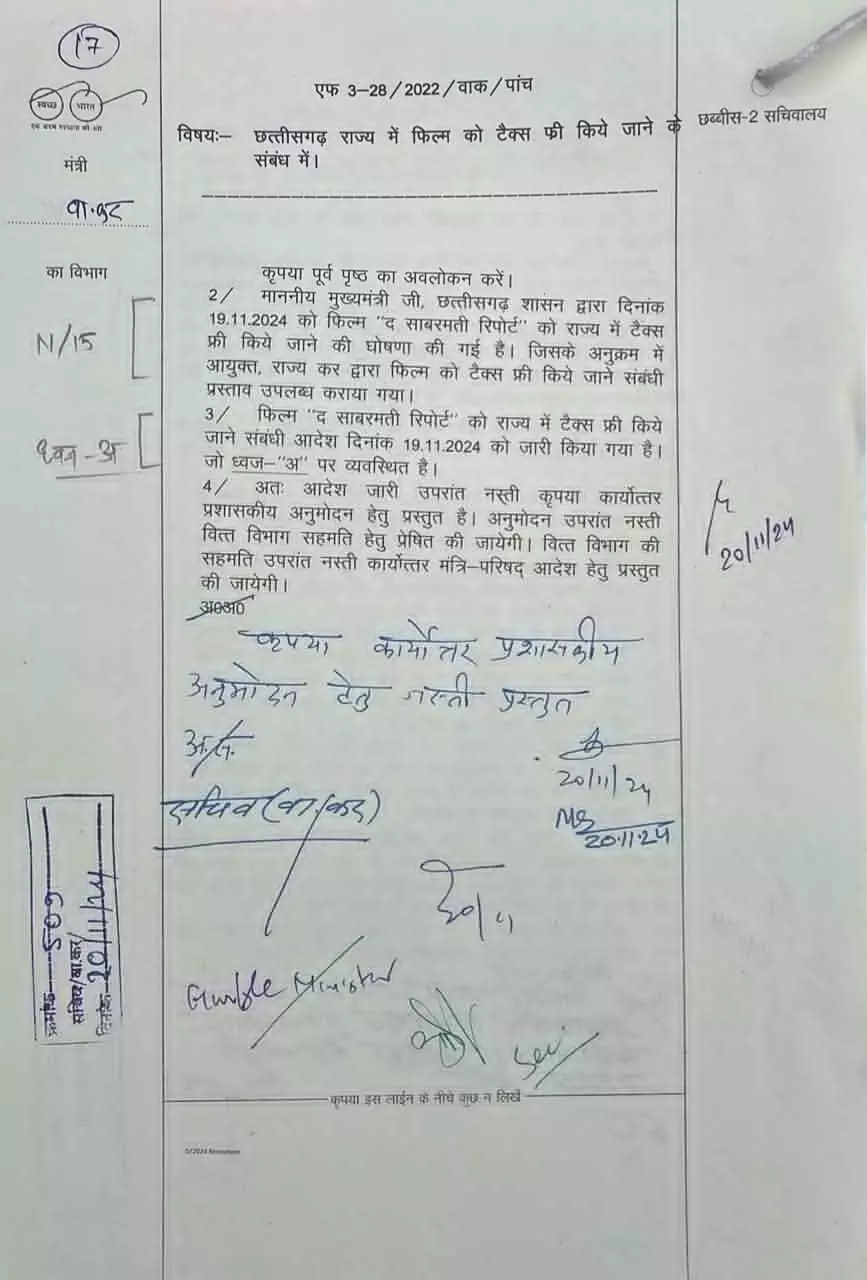 17
स्वच्छ भारत
एक कदम स्वच्छता की ओर
एफ 3-28/2022/वाक/पांच
छब्बीस-2 सचिवालय
विषयः- छत्तीसगढ़ राज्य में फिल्म को टैक्स फ्री किये जाने के
संबंध में।
मंत्री
वा.कर
का विभाग
कृपया पूर्व पृष्ठ का अवलोकन करें।
2/ माननीय मुख्यमंत्री जी, छत्तीसगढ़ शासन द्वारा दिनांक
19.11.2024 को फिल्म "द साबरमती रिपोर्ट" को राज्य में टैक्स
फ्री किये जाने की घोषणा की गई है। जिसके अनुक्रम में
आयुक्त, राज्य कर द्वारा फिल्म को टैक्स फ्री किये जाने संबंधी
प्रस्ताव उपलब्ध कराया गया।
N/15
3/ फिल्म "द साबरमती रिपोर्ट" को राज्य में टैक्स फ्री किये
जाने संबंधी आदेश दिनांक 19.11.2024 को जारी किया गया है।
जो ध्वज-"अ" पर व्यवस्थित है।
ध्वज-अ
4/ अतः आदेश जारी उपरांत नस्ती कृपया कार्योत्तर
प्रशासकीय अनुमोदन हेतु प्रस्तुत है। अनुमोदन उपरांत नस्ती
वित्त विभाग सहमति हेतु प्रेषित की जायेगी। वित्त विभाग की
सहमति उपरांत नस्ती कार्योत्तर मंत्रि-परिषद् आदेश हेतु प्रस्तुत
की जायेगी।
20/11/24
अ0अ0
कृपया कार्योत्तर प्रशासकीय
अनुमोदन हेतु नस्ती प्रस्तुत
अ.स.
20/11/24
सचिव (वा.कर)
20.11.24
क्रमांक 509
सचिव/वा.कर
दिनांक 20/11/24
20/11
Hon'ble Minister
कृपया इस लाईन के नीचे कुछ न लिखें